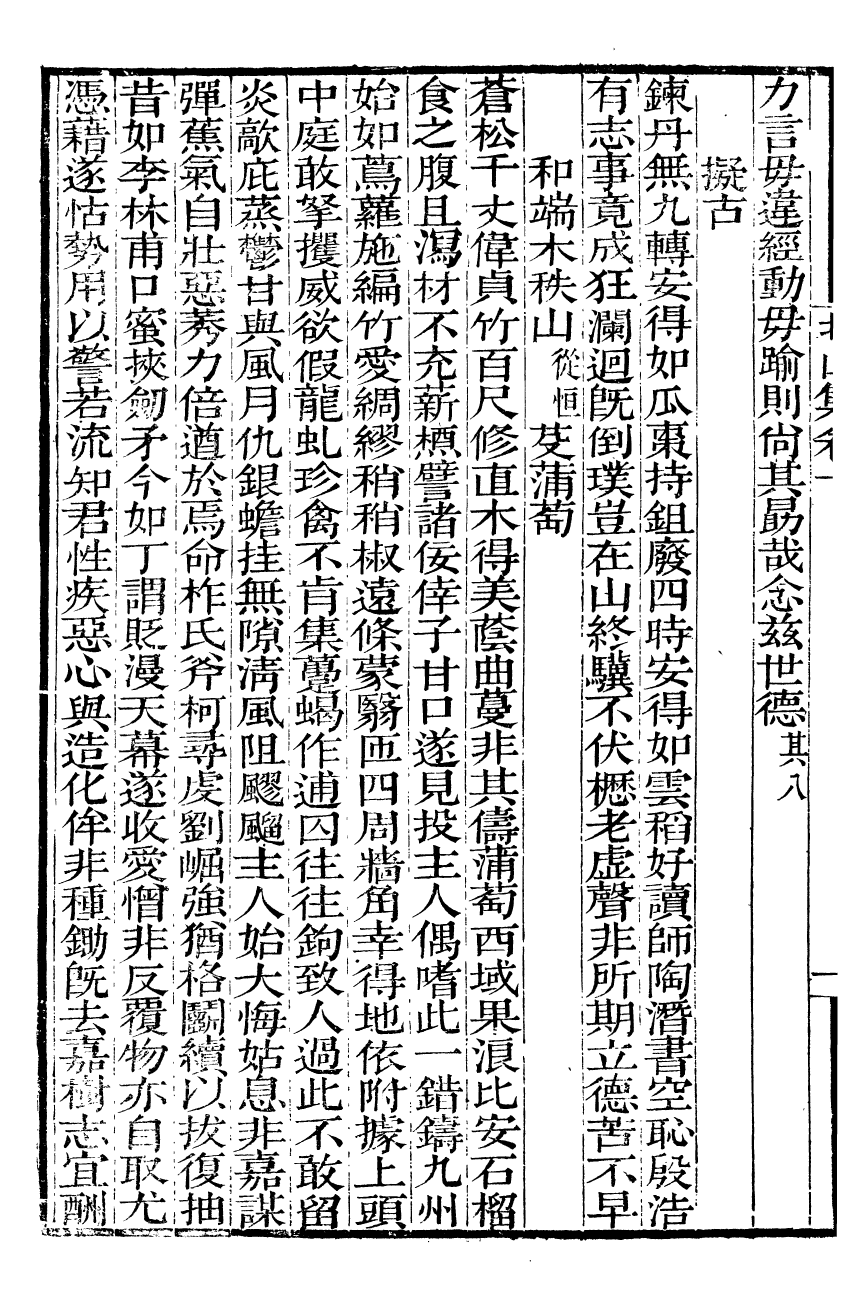 力言毋違經動毋踰則尙其勗哉念茲世德其八
擬古
鍊丹無九轉安得如瓜棗持鉏廢四時安得如雲稻好讀師陶潛書空恥殷浩
有志事竟成狂瀾迴旣倒璞豈在山終驥不伏櫪老虛聲非所期立德苦不早
和端木秩山從恒芟蒲萄
蒼松千丈偉貞竹百尺修直木得美蔭曲蔓非其儔蒲萄西域果浪比安石榴
食之腹且瀉材不充薪槱譬諸佞倖子甘口遂見投主人偶嗜此一錯鑄九州
始如蔦蘿施編竹愛綢繆稍稍椒遠條蒙翳匝四周牆角幸得地依附據上頭
中庭敢拏攫威欲假龍虬珍禽不肯集蠆蝎作逋囚往往鉤致人過此不敢留
炎歊庇蒸鬱甘與風月仇銀蟾挂無隙淸風阻飂飀主人始大悔姑息非嘉謀
彈蕉氣自壯惡莠力倍遒於焉命柞氏斧柯尋虔劉崛強猶格鬭續以拔復抽
昔如李林甫口蜜挾劒矛今如丁謂貶漫天幕遂收愛憎非反覆物亦自取尤
憑藉遂怙勢用以警若流知君性疾惡心與造化侔非種鋤旣去嘉樹志宜酬
北山集卷一
一